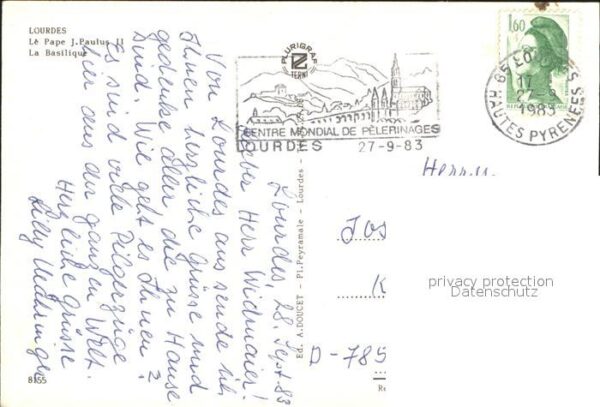 LOURDES
Le Pape J.Paulus II
La Basilique
PLURIGRAF
TERNI
CENTRE MONDIAL DE PÈLERINAGES
LOURDES 27-9-83
1,60
65 LOURDES
17-
27-9
1983
HAUTES PYRENEES
Lourdes, 28. Sept 83
Lieber Herr Widmaier!
Von Lourdes aus sende ich
Ihnen herzliche Grüsse und
gedenke aller die zu Hause
sind. Wie geht es Ihnen?
Es sind viele Pilgerzüge
hier aus der ganzen Welt.
Herzliche Grüsse
Lilly
Ed. A.DOUCET - Pl.Peyramale - Lourdes
Herrn
Jos
K
D-785
privacy protection
Datenschutz
8155